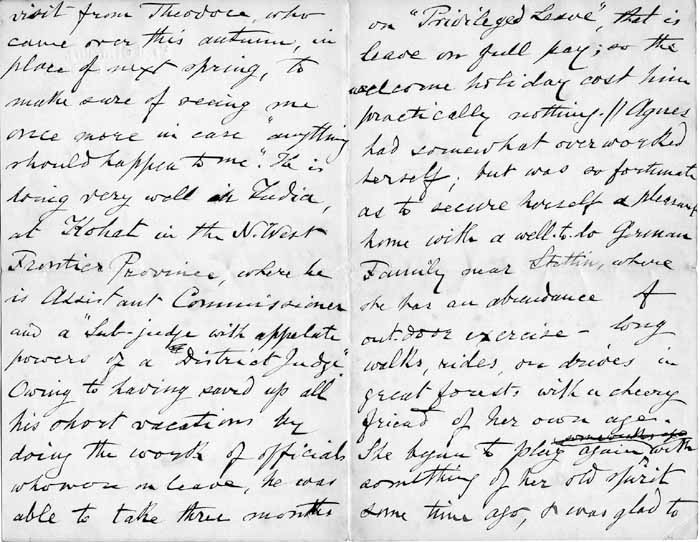 visit from Theodore, who
came over this autumn, in
place of next spring, to
make sure of seeing me
once more in case "anything
should happen to me". He is
doing very well in India,
at Kohat in the N. West
Frontier Province, where he
is Assistant Commissioner
and a "Sub-judge with appelate
powers of a "District Judge"
Owing to having saved up all
his short vacations by
doing the work of officials
who were on leave, he was
able to take three months
on "Privileged Leave", that is
leave on full pay; so the
welcome holiday cost him
practically nothing. // Agnes
had somewhat overworked
herself; but was so fortunate
as to secure herself a pleasant
home with a well-to-do German
Family near Stettin, where
she has an abundance of
out-door exercise - long
walks, rides, or drives in
great forests with a cheery
friend of her own age.
She began to play again with
something of her old spirit
some time ago, & was glad to